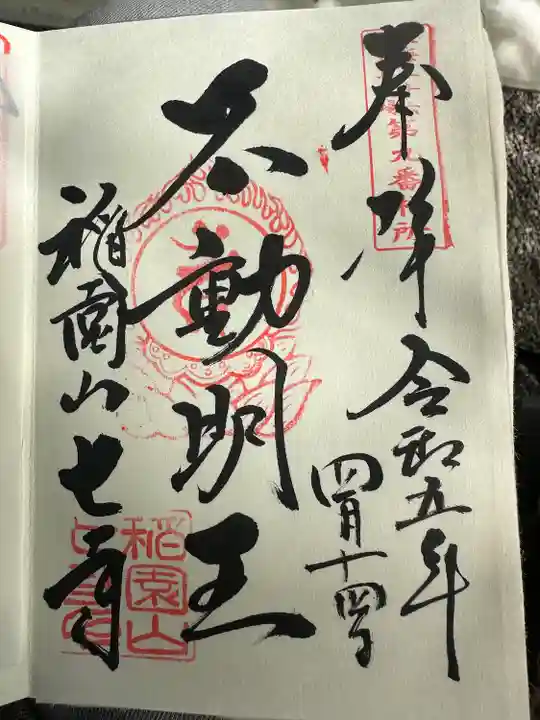 奉拝
令和五年
四月十四日
不動明王
稲園山七寺
稲園山